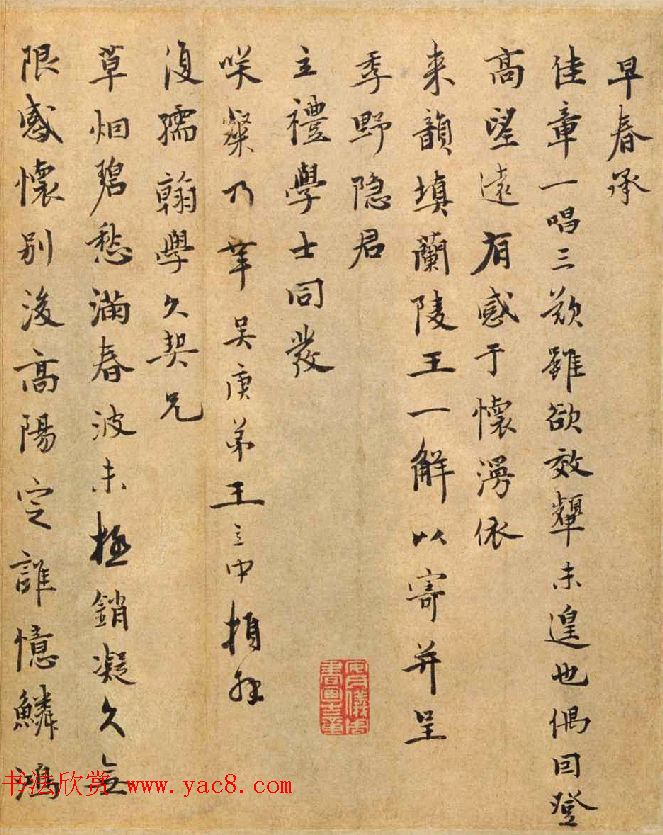 早春承
佳章一唱三歎雖欲效顰未遑也偶因登
高望遠有感于懷漫依
来韻填蘭陵王一解以寄并呈
季野隐君
主禮學士同發
咲粲乃幸吴庚弟王立中頓
復孺翰學久契兄
草烟碧愁滿春波未極銷凝久無
限感懷别後高陽定誰憶鱗鴻
书法欣赏 www.yac8.com